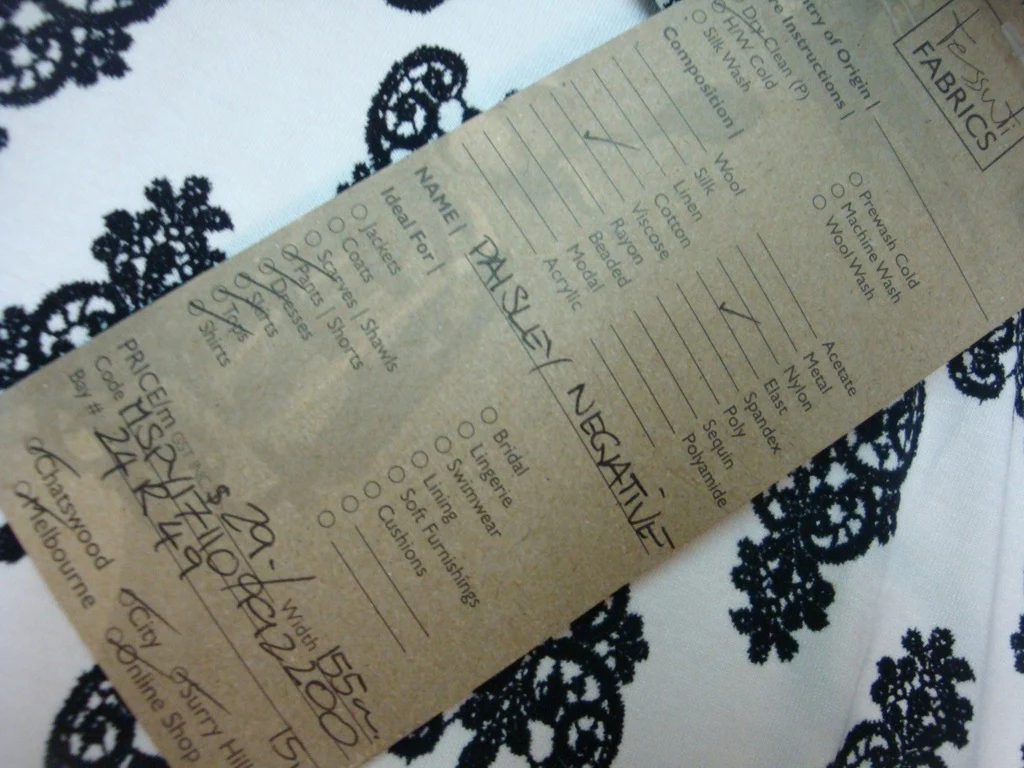 Tessuti
FABRICS
try of Origin |
re Instructions |
Dry Clean (P)
H/W Cold
Silk Wash
Prewash Cold
Machine Wash
Wool Wash
Composition |
Wool
Silk
Linen
✓ Cotton
Viscose
Rayon
Beaded
Modal
Acrylic
Acetate
Metal
Nylon
✓ Elast
Spandex
Poly
Sequin
Polyamide
NAME | PAISLEY NEGATIVE
Ideal For |
Jackets
Coats
Scarves | Shawls
Pants | Shorts
Dresses
Skirts
Tops
Shirts
Bridal
Lingerie
Swimwear
Lining
Soft Furnishings
Cushions
PRICE/m GST INC $ 29.- Width 155cm
Code
Bay # 24 R 49
Chatswood
Melbourne
City
Online Shop
Surry Hill